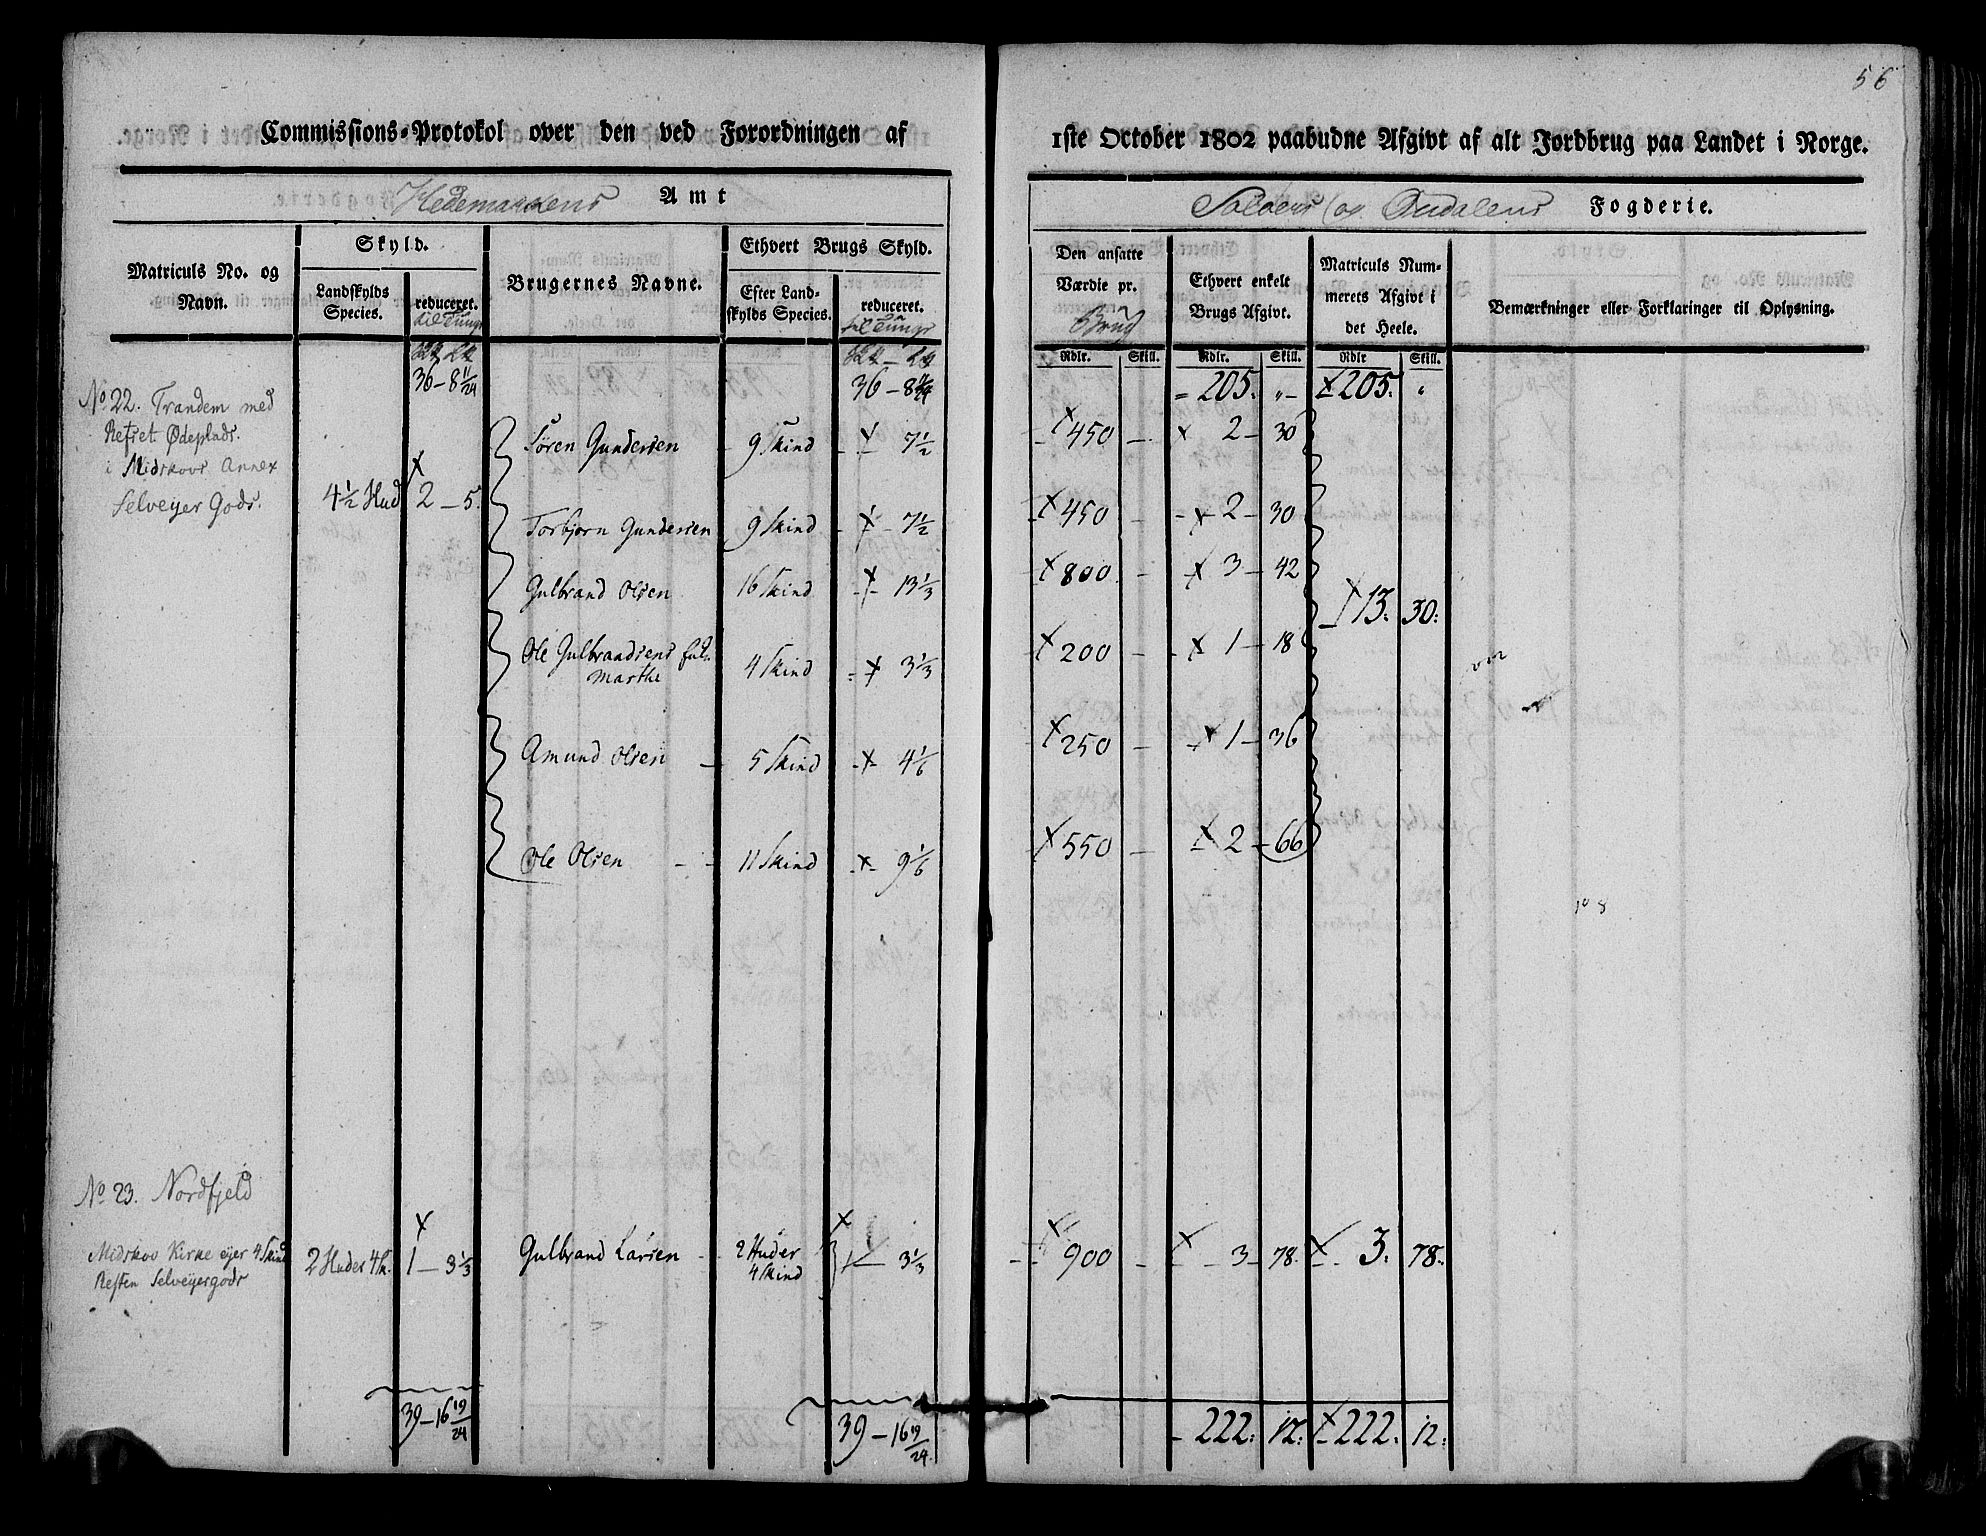 56
Commissions-Protokol over den ved Forordningen af 1ste October 1802 paabudne Afgivt af alt Jordbrug paa Landet i Norge.
Hedemarkens Amt
Soloers og Oudalens Fogderie.
Matriculs No. og Navn.
Skyld.
Landskylds Species.
reduceret.
Brugernes Navne.
Ethvert Brugs Skyld.
Efter Landskylds Species.
reduceret.
Den ansatte Værdie pr. Brug
Ethvert enkelt Brugs Afgivt.
Matriculs Nummerets Afgivt i det Heele.
Bemærkninger eller Forklaringer til Oplysning.
Rdlr. Skill. Rdlr. Skill. Rdlr Skill.
36 – 8 11/24 36 – 8 11/24 205. „ 205. „
No 22. Trandem med
Refset Ødeplads.
i Midskovs Annex
Selveyer Gods.
4½ Hud 2 – 5.
Søren Gundersen 9 Skind 7½ 450 2 – 30
Torbjørn Gundersen 9 Skind 7½ 450 2 – 30
Gulbrand Olsen 16 Skind 13⅓ 800 3 – 42
13. 30.
Ole Gulbrandsens
Marthe 4 Skind 3⅓ 200 1 – 18
Amund Olsen 5 Skind 4 1/6 250 1 – 36
Ole Olsen 11 Skind 9 1/6 550 2 – 66
No 23. Nordfjeld
Midskov Kirke ejer 4 Skind
Resten Selveyergods
2 Huder 4 Sk. 1 – 3⅓
Gulbrand Larsen 2 Huder
4 Skind 1 – 3⅓ 900 3 – 78. 3. 78.
39 – 16 19/24 39 – 16 19/24 222. 12. 222. 12.